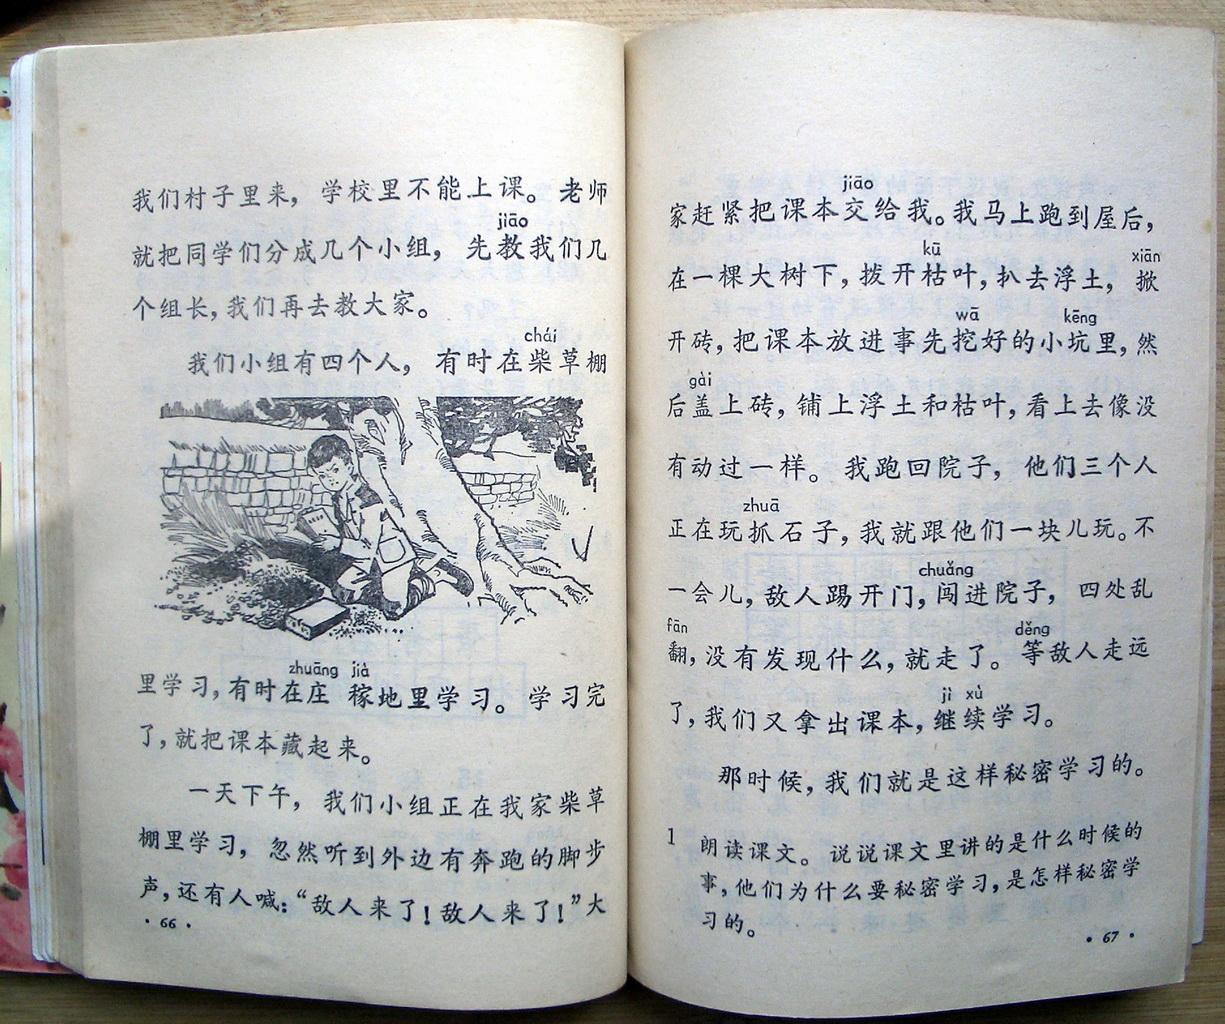 我们村子里来，学校里不能上课。老师
jiāo
就把同学们分成几个小组，先教我们几
个组长，我们再去教大家。
chái
我们小组有四个人，有时在柴草棚
zhuāng jià
里学习，有时在庄稼地里学习。学习完
了，就把课本藏起来。
一天下午，我们小组正在我家柴草
棚里学习，忽然听到外边有奔跑的脚步
声，还有人喊：“敌人来了！敌人来了！”大
·66·
jiāo
家赶紧把课本交给我。我马上跑到屋后，
kū xiān
在一棵大树下，拨开枯叶，扒去浮土，掀
wā kēng
开砖，把课本放进事先挖好的小坑里，然
gài
后盖上砖，铺上浮土和枯叶，看上去像没
有动过一样。我跑回院子，他们三个人
zhuā
正在玩抓石子，我就跟他们一块儿玩。不
chuǎng
一会儿，敌人踢开门，闯进院子，四处乱
fān děng
翻，没有发现什么，就走了。等敌人走远
jì xù
了，我们又拿出课本，继续学习。
那时候，我们就是这样秘密学习的。
1 朗读课文。说说课文里讲的是什么时候的
事，他们为什么要秘密学习，是怎样秘密学
习的。
·67·